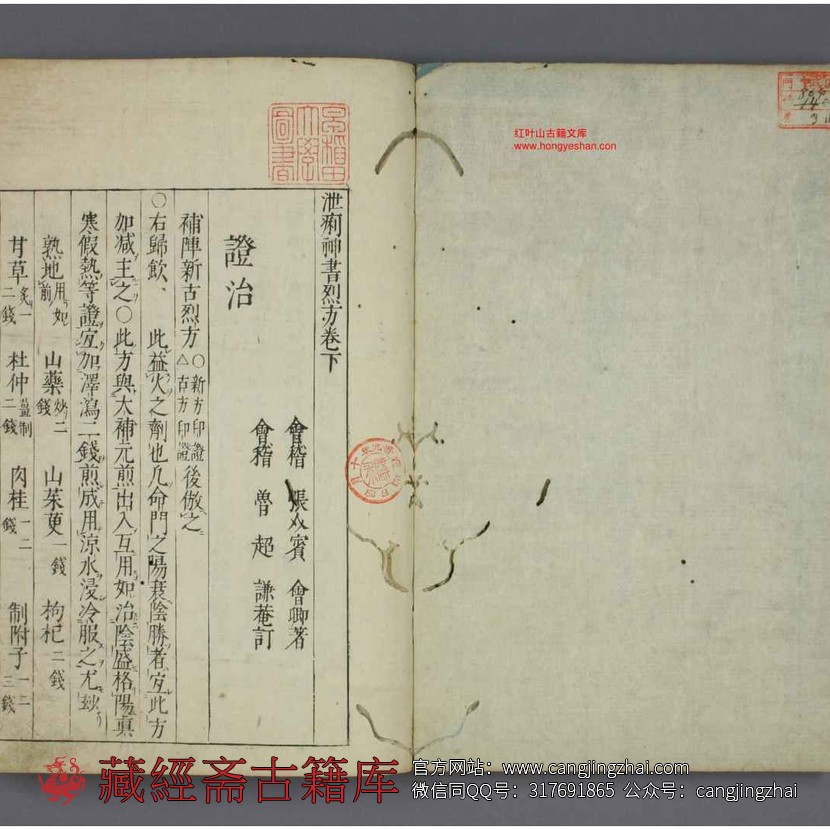 泄痢神書烈方卷下
會稽 張介賓 會卿著
會稽 魯超 謙菴訂
證治
補陣新古烈方 ○新方印證 △古方印證 後倣之
○右歸飲、 此益火之劑也凡命門之陽衰陰勝者宜此方
加減主之○此方與大補元煎出入互用如治陰盛格陽真
寒假熱等證宜加澤瀉二錢煎成用凉水浸冷服之尤玅
熟地 用如前 山藥 炒二錢 山茱萸 一錢 枸杞 二錢
甘草 炙一二錢 杜仲 薑制二錢 肉桂 一二錢 制附子 一二三錢
紅叶山古籍文库
www.hongyeshan.com
藏經斋古籍库
官方网站：www.cangjingzhai.com
微信同QQ号：317691865 公众号：cangjingzhai